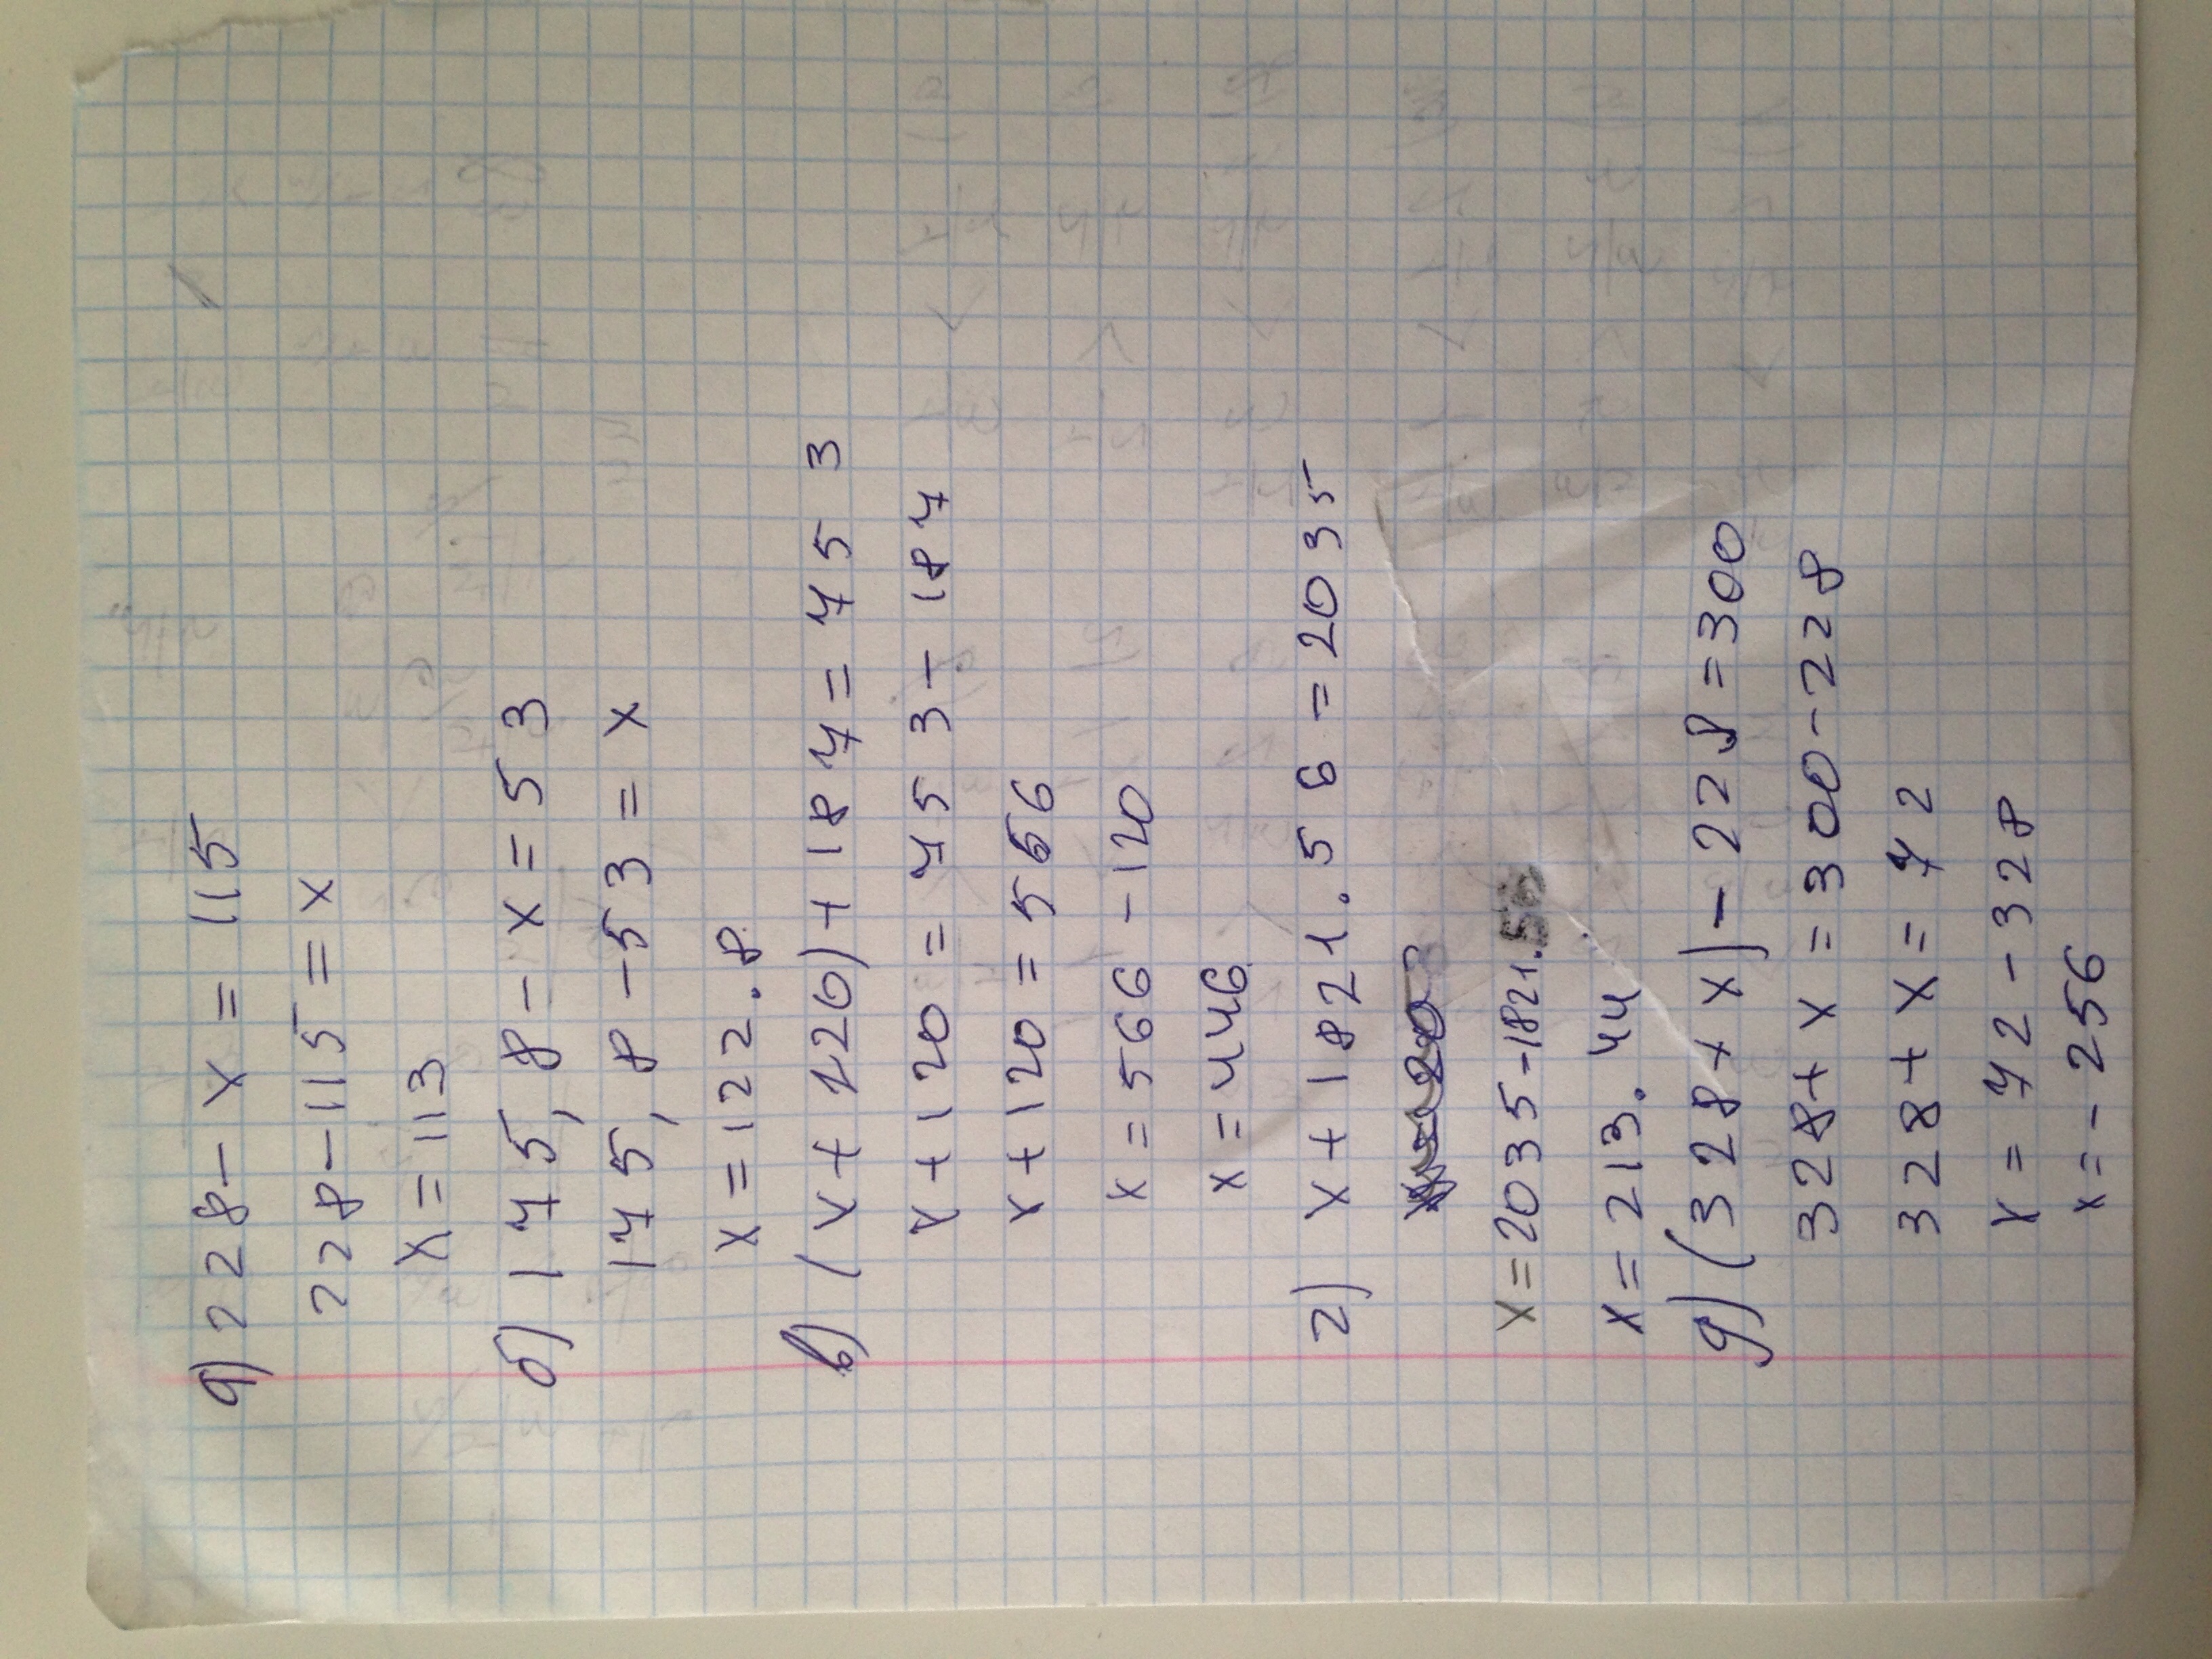 а) 228 - x = 115
228 - 115 = x
x = 113
б) 175,8 - x = 53
175,8 - 53 = x
x = 122.8
в) (x + 120) + 187 = 753
x + 120 = 753 - 187
x + 120 = 566
x = 566 - 120
x = 446
г) x + 1821.56 = 2035
x = 2035 - 1821.56
x = 213.44
д) (328 + x) - 228 = 300
328 + x = 300 - 228
328 + x = 72
x = 72 - 328
x = - 256